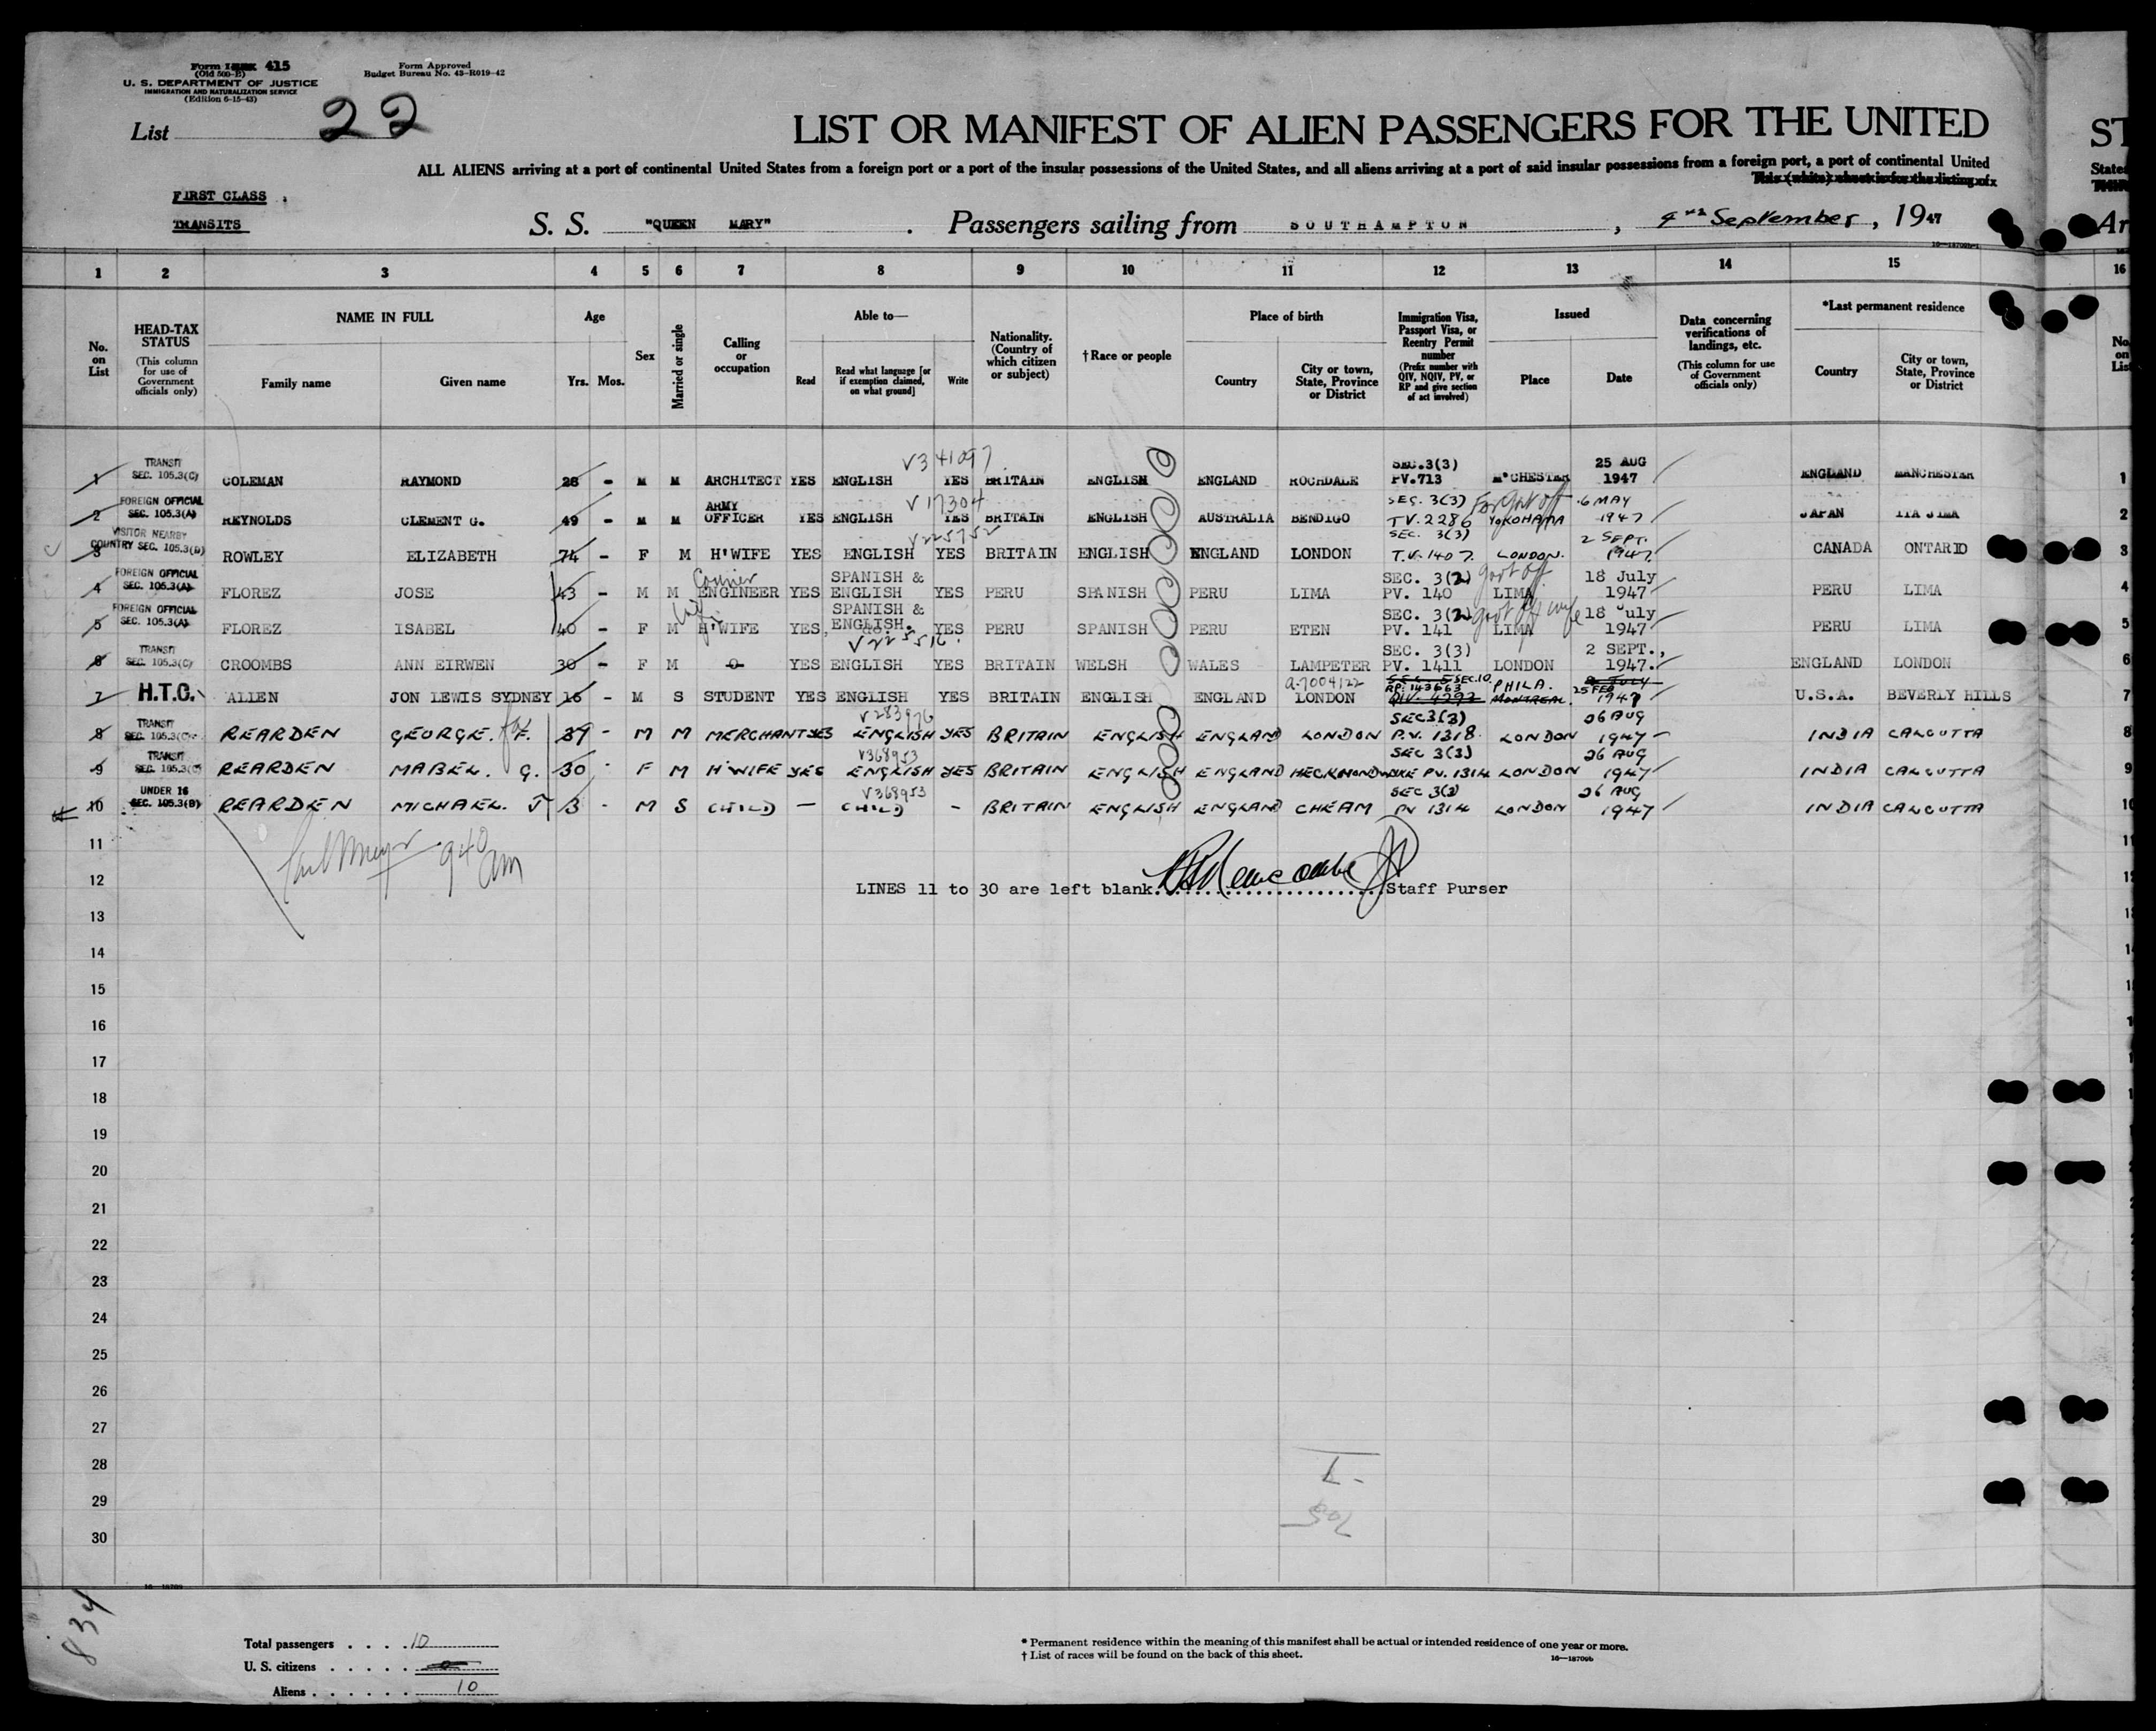 Form 415
Form Approved
(Old 500-B)
Budget Bureau No. 43-R019-42
U. S. DEPARTMENT OF JUSTICE
IMMIGRATION AND NATURALIZATION SERVICE
(Edition 6-15-43)
List 22
LIST OR MANIFEST OF ALIEN PASSENGERS FOR THE UNITED
ST
ALL ALIENS arriving at a port of continental United States from a foreign port or a port of the insular possessions of the United States, and all aliens arriving at a port of said insular possessions from a foreign port, a port of continental United
States
This (white) sheet is for the listing of
FIRST CLASS
TRANSITS
S. S. "QUEEN MARY" . Passengers sailing from SOUTHAMPTON , September, 1947
Ar
1 2 3 4 5 6 7 8 9 10 11 12 13 14 15 16
No. on List
HEAD-TAX STATUS
(This column for use of Government officials only)
NAME IN FULL
Family name
Given name
Age
Yrs. Mos.
Sex
Married or single
Calling or occupation
Able to—
Read
Read what language [or if exemption claimed, on what ground]
Write
Nationality. (Country of which citizen or subject)
†Race or people
Place of birth
Country
City or town, State, Province or District
Immigration Visa, Passport Visa, or Reentry Permit number
(Prefix number with QIV, NQIV, PV, or RP and give section of act involved)
Issued
Place
Date
Data concerning verifications of landings, etc.
(This column for use of Government officials only)
*Last permanent residence
Country
City or town, State, Province or District
No. on List
TRANSIT V341097 SEC.3(3) 25 AUG
1 SEC. 105.3(C) COLEMAN RAYMOND 28 - M M ARCHITECT YES ENGLISH YES BRITAIN ENGLISH ENGLAND ROCHDALE PV.713 M'CHESTER 1947 ENGLAND MANCHESTER 1
FOREIGN OFFICIAL ARMY V17304 SEC. 3(3) 6 MAY
2 SEC. 105.3(A) REYNOLDS CLEMENT G. 49 - M M OFFICER YES ENGLISH YES BRITAIN ENGLISH AUSTRALIA BENDIGO TV.2286 YOKOHAMA 1947 JAPAN 2
VISITOR NEARBY V225752 SEC. 3(3) 2 SEPT.
3 COUNTRY SEC. 105.3(D) ROWLEY ELIZABETH 74 - F M H'WIFE YES ENGLISH YES BRITAIN ENGLISH ENGLAND LONDON T.V. 1407. LONDON. 1947. CANADA ONTARIO 3
FOREIGN OFFICIAL SPANISH & SEC. 3(2) govt off 18 July
4 SEC. 105.3(A) FLOREZ JOSE 43 - M M ENGINEER YES ENGLISH YES PERU SPANISH PERU LIMA PV. 140 LIMA 1947 PERU LIMA 4
FOREIGN OFFICIAL SPANISH & SEC. 3(2) govt off wife 18 July
5 SEC. 105.3(A) FLOREZ ISABEL 40 - F M H'WIFE YES ENGLISH. YES PERU SPANISH PERU ETEN PV. 141 LIMA 1947 PERU LIMA 5
TRANSIT V225516 SEC. 3(3) 2 SEPT.,
6 SEC. 105.3(C) CROOMBS ANN EIRWEN 30 - F M -0- YES ENGLISH YES BRITAIN WELSH WALES LAMPETER PV. 1411 LONDON 1947. ENGLAND LONDON 6
a-7004122 SEC. 10 PHILA. 25 FEB
7 H.T.C. ALLEN JON LEWIS SYDNEY 16 - M S STUDENT YES ENGLISH YES BRITAIN ENGLISH ENGLAND LONDON RP. 143663 QIV. 4292 MONTREAL. 1947 U.S.A. BEVERLY HILLS 7
TRANSIT V283976 SEC 3(3) 26 AUG
8 SEC. 105.3(C) REARDEN GEORGE. F. 39 - M M MERCHANT YES ENGLISH YES BRITAIN ENGLISH ENGLAND LONDON P.V. 1318 LONDON 1947 INDIA CALCUTTA 8
TRANSIT V368953 SEC 3(3) 26 AUG
9 SEC. 105.3(C) REARDEN MABEL. G. 30 - F M H'WIFE YES ENGLISH YES BRITAIN ENGLISH ENGLAND HECKMONDWIKE PV. 1314 LONDON 1947 INDIA CALCUTTA 9
UNDER 16 V368953 SEC 3(3) 26 AUG
10 SEC. 105.3(B) REARDEN MICHAEL. J 3 - M S CHILD — CHILD - BRITAIN ENGLISH ENGLAND CHEAM PV 1314 LONDON 1947 INDIA CALCUTTA 10
11
940 am
12
LINES 11 to 30 are left blank. Staff Purser
13
14
15
16
17
18
19
20
21
22
23
24
25
26
27
28
29
30
834
Total passengers . . . . 10
U. S. citizens . . . . . 0
Aliens . . . . . . 10
* Permanent residence within the meaning of this manifest shall be actual or intended residence of one year or more.
† List of races will be found on the back of this sheet.
16—18709b